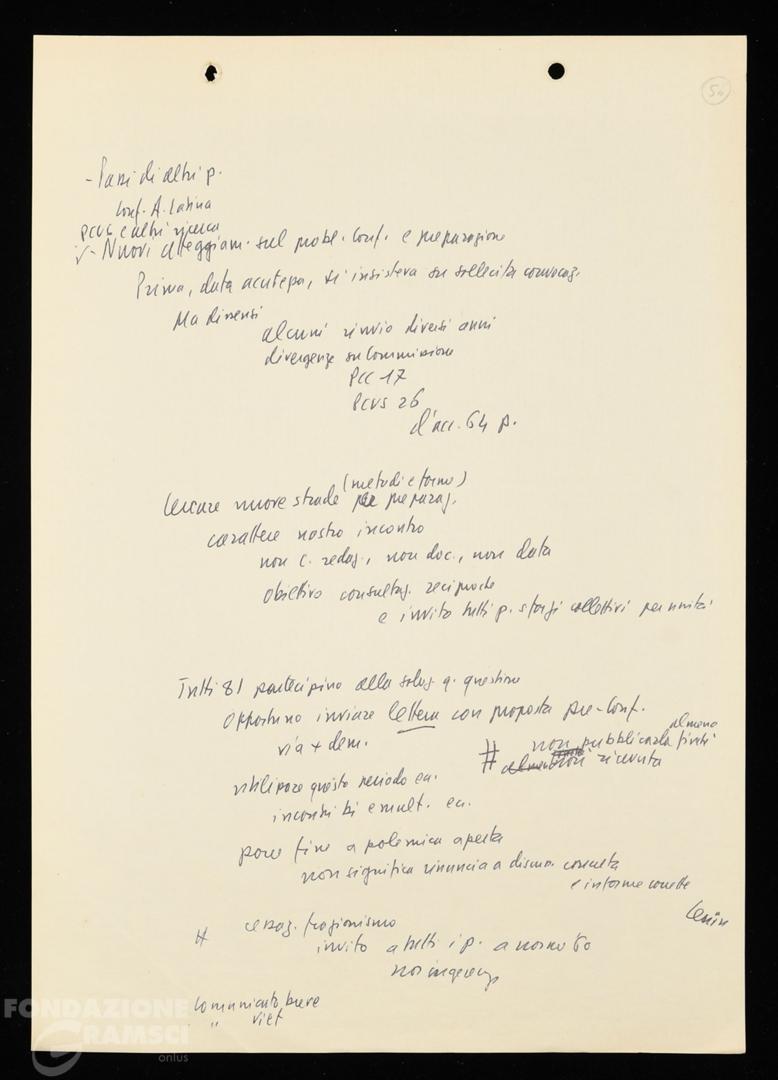 54
- Passi di altri p.
Conf. A. Latina
PCUS e altri
- Nuovi atteggiam. sul probl. Conf. e preparazione
Prima, data acutezza, si insisteva su sollecita convocaz.
Ma dissensi
alcuni rinvio diversi anni
divergenze su Commissione
PCC 17
PCUS 26
d'acc. 64 p.
Cercare nuove strade (metodi e forme)
per preparaz.
carattere nostro incontro
non c. redaz., non doc., non data
obiettivo consultaz. reciproche
e invito tutti p. sforzi collettivi per unità
Tutti 81 partecipino alla soluz. q. questione
Opportuno inviare lettera con proposta pre-Conf.
via + dem.
# non pubblicarla finché almeno
non ricevuta
utilizzare questo periodo ecc.
incontri bi e mult. ecc.
porre fine a polemica aperta
non significa rinuncia a discuss. concreta
e in forme corrette
Lenin
# cessaz. frazionismo
invito a tutti i p. a norme 60
non ingerenza
Comunicato breve
" Viet
FONDAZIONE
GRAMSCI
onlus